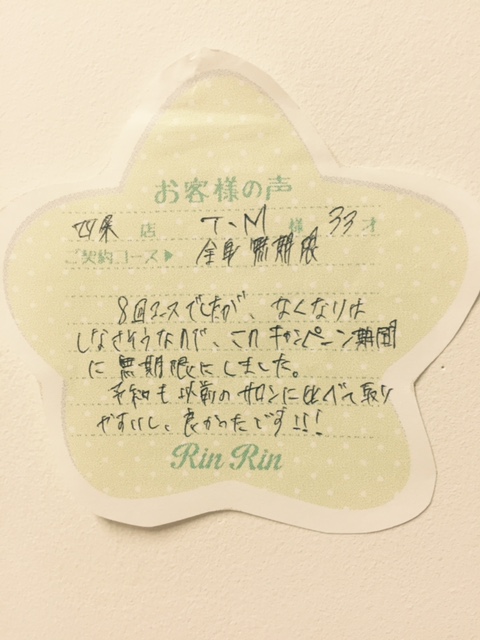 お客様の声
四条 店 T.M 様 33才
ご契約コース▶ 全身無期限
8回コースでしたが、なくなりは
しなさそうなので、このキャンペーン期間
に無期限にしました。
予約も以前のサロンに比べて取り
やすいし、良かったです!!!
Rin Rin